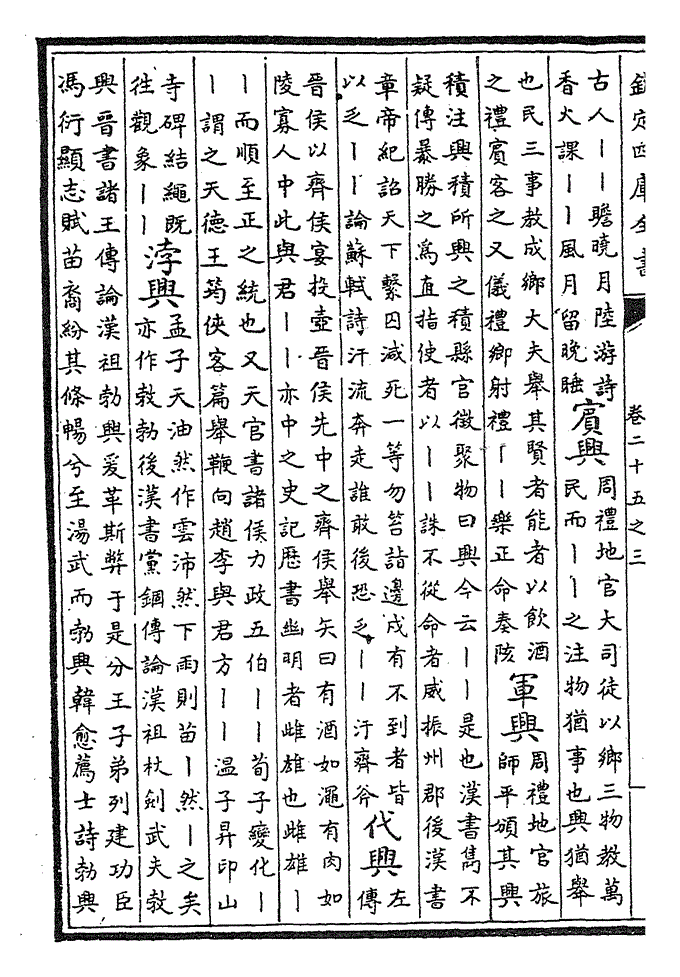 欽定四庫全書
卷二十五之三
古人丨丨瞻曉月陸游詩
香火課丨丨風月留晚睡
賓興
周禮地官大司徒以鄉三物教萬
民而丨丨之注物猶事也興猶舉
也民三事教成鄉大夫舉其賢者能者以飲酒
之禮賓客之又儀禮鄉射禮丨丨樂正命奏陔
軍興
周禮地官旅
師平頒其興
積注興積所興之積縣官徵聚物曰興今云丨丨是也漢書雋不
疑傳暴勝之為直指使者以丨丨誅不從命者威振州郡後漢書
章帝紀詔天下繫囚減死一等勿笞詣邊戍有不到者皆
以乏丨丨論蘇軾詩汗流奔走誰敢後恐乏丨丨汙齊斧
代興
左
傳
晉侯以齊侯宴投壺晉侯先中之齊侯舉矢曰有酒如澠有肉如
陵寡人中此與君丨丨亦中之史記歴書幽明者雌雄也雌雄丨
丨而順至正之統也又天官書諸侯力政五伯丨丨荀子變化丨
丨謂之天德王筠俠客篇舉鞭向趙李與君方丨丨溫子昇印山
寺碑結繩既
徃觀象丨丨
浡興
孟子天油然作雲沛然下雨則苗丨然丨之矣
亦作㪍勃後漢書黨錮傳論漢祖杖劍武夫㪍
興晉書諸王傳論漢祖勃興爰革斯弊于是分王子弟列建功臣
馮衍顯志賦苗裔紛其條暢兮至湯武而勃興韓愈薦士詩勃興